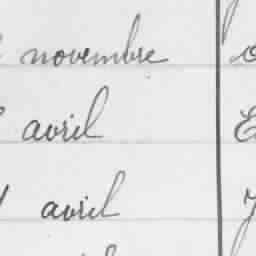 novembre
avril
avril